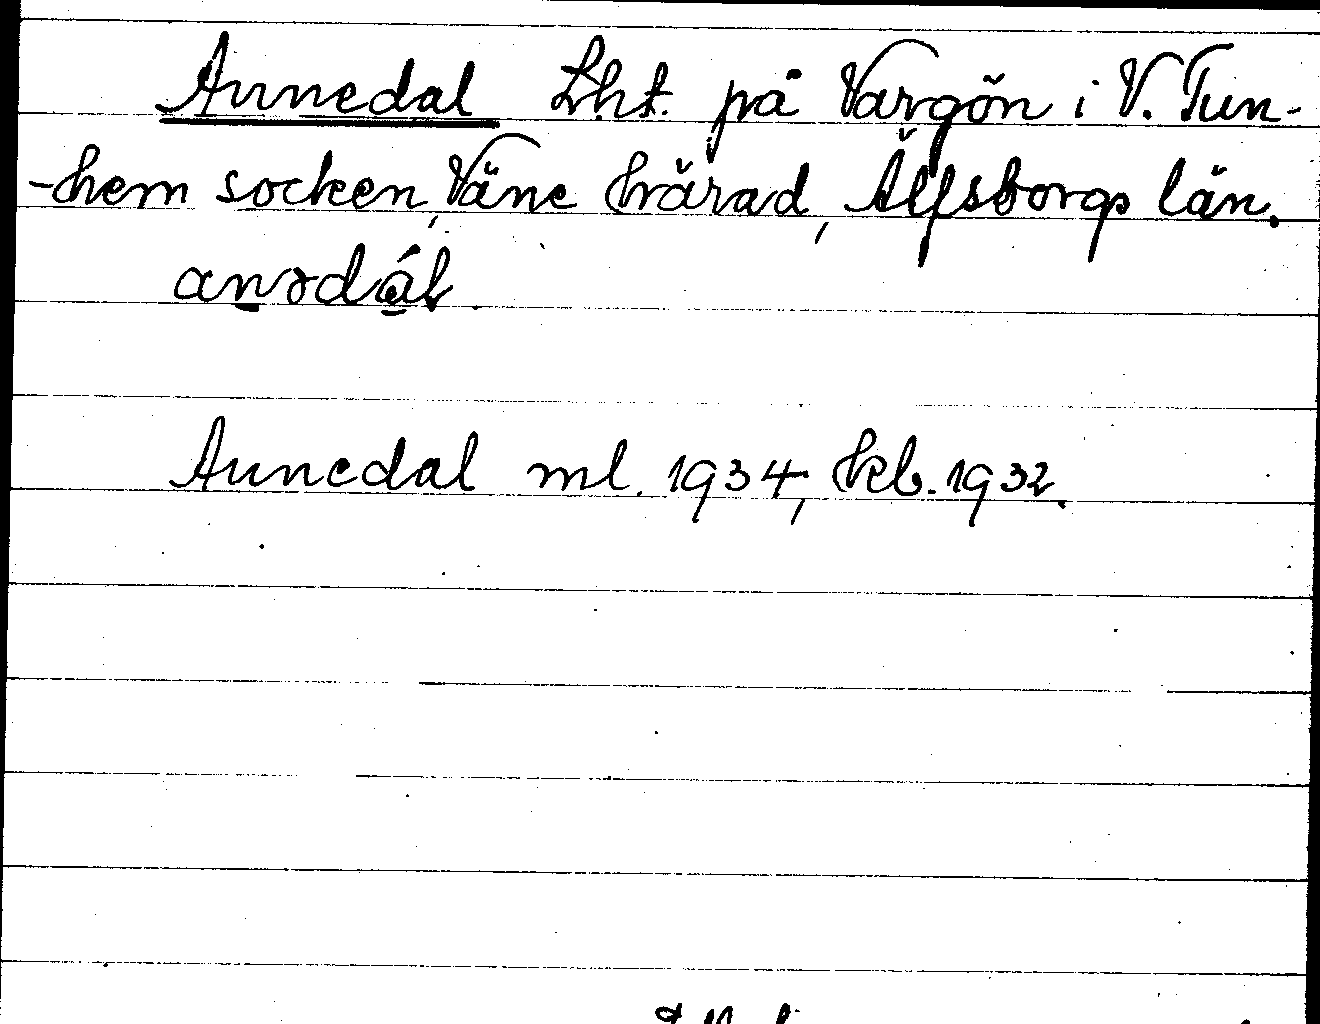 Annedal Lht. på Vargön i V. Tun-
-hem socken, Väne härad, Älfsborgs län.
anədál.
Annedal ml. 1934, kb. 1932.